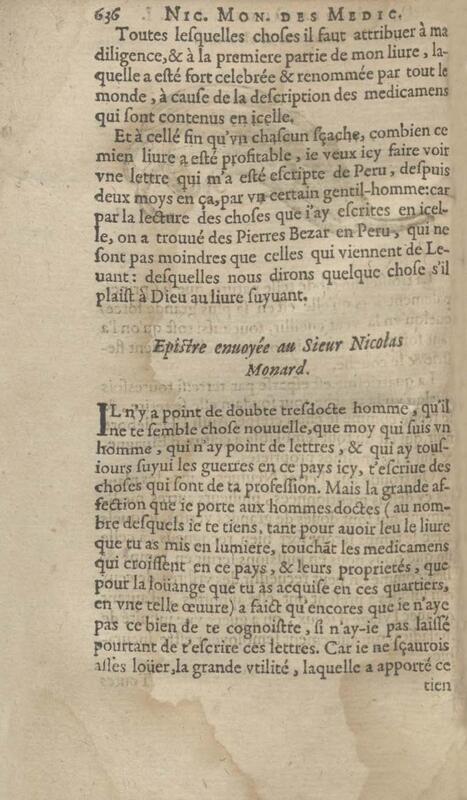 636 NIC. MON. DES MEDIC.
Toutes lesquelles choses il faut attribuer à ma
diligence, & à la premiere partie de mon liure, la-
quelle a esté fort celebrée & renommée par tout le
monde, à cause de la description des medicamens
qui sont contenus en icelle.
Et à cellé fin qu'vn chascun sçache, combien ce
mien liure a esté profitable, ie veux icy faire voir
vne lettre qui m'a esté escripte de Peru, despuis
deux moys en ça, par vn certain gentil-homme: car
par la lecture des choses que i'ay escrites en icel-
le, on a trouué des Pierres Bezar en Peru, qui ne
sont pas moindres que celles qui viennent de Le-
uant: desquelles nous dirons quelque chose s'il
plaist à Dieu au liure suyuant.
Epistre enuoyée au Sieur Nicolas
Monard.
IL n'y a point de doubte tresdocte homme, qu'il
ne te semble chose nouuelle, que moy qui suis vn
homme, qui n'ay point de lettres, & qui ay tous-
iours suyui les guerres en ce pays icy, t'escriue des
choses qui sont de ta profession. Mais la grande af-
fection que ie porte aux hommes doctes (au nom-
bre desquels ie te tiens, tant pour auoir leu le liure
que tu as mis en lumiere, touchãt les medicamens
qui croissent en ce pays, & leurs proprietés, que
pour la loüange que tu às acquise en ces quartiers,
en vne telle œuure) a faict qu'encores que ie n'aye
pas ce bien de te cognoistre, si n'ay-ie pas laissé
pourtant de t'escrire ces lettres. Car ie ne sçaurois
assés loüer, la grande vtilité, laquelle a apporté ce
tien